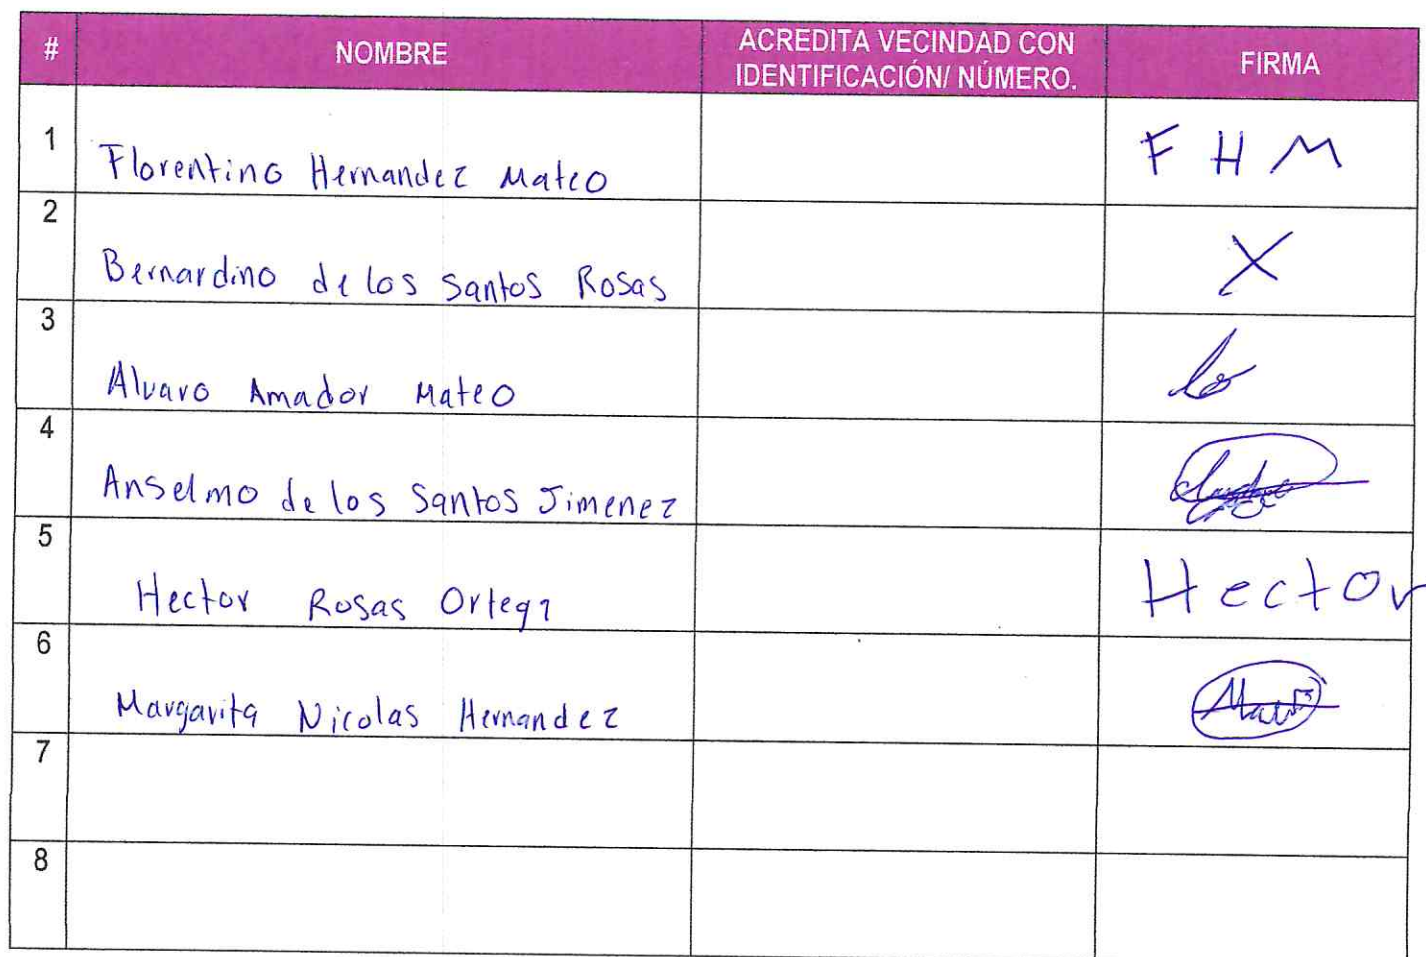 # NOMBRE ACREDITA VECINDAD CON IDENTIFICACIÓN/ NÚMERO. FIRMA
1 Florentino Hernandez Mateo F H M
2 Bernardino de los Santos Rosas X
3 Alvaro Amador Mateo
4 Anselmo de los Santos Jimenez
5 Hector Rosas Ortega Hector
6 Margarita Nicolas Hernandez
7
8